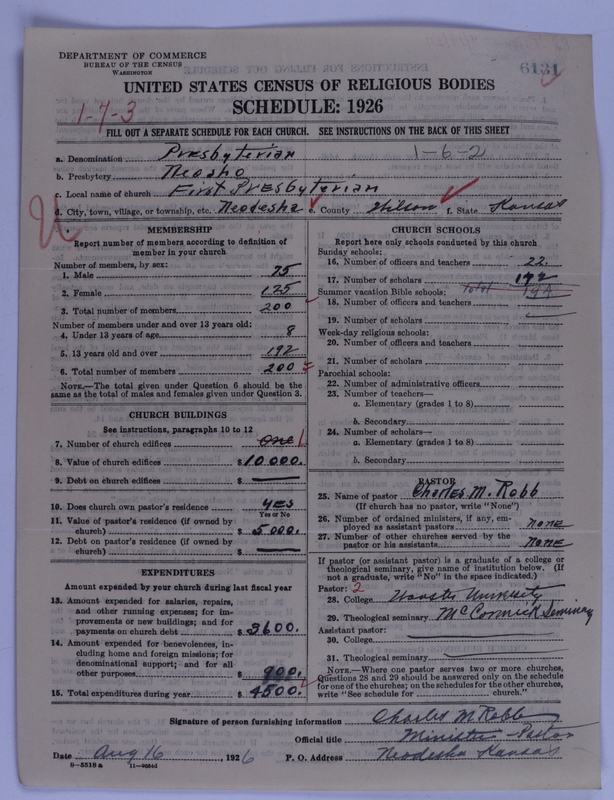 DEPARTMENT OF COMMERCE
BUREAU OF THE CENSUS
WASHINGTON
6131
UNITED STATES CENSUS OF RELIGIOUS BODIES
SCHEDULE: 1926
1-7-3
FILL OUT A SEPARATE SCHEDULE FOR EACH CHURCH. SEE INSTRUCTIONS ON THE BACK OF THIS SHEET
a. Denomination Presbyterian 1-6-2
b. Presbytery Neosho
c. Local name of church First Presbyterian
d. City, town, village, or township, etc. Neodesha e. County Wilson f. State Kansas
MEMBERSHIP
Report number of members according to definition of
member in your church
Number of members, by sex:
1. Male 75
2. Female 125
3. Total number of members 200
Number of members under and over 13 years old:
4. Under 13 years of age 8
5. 13 years old and over 192
6. Total number of members 200
NOTE.—The total given under Question 6 should be the
same as the total of males and females given under Question 3.
CHURCH BUILDINGS
See instructions, paragraphs 10 to 12
7. Number of church edifices one 1
8. Value of church edifices $10000.
9. Debt on church edifices $
10. Does church own pastor's residence yes
Yes or No
11. Value of pastor's residence (if owned by
church) $5000.
12. Debt on pastor's residence (if owned by
church) $
EXPENDITURES
Amount expended by your church during last fiscal year
13. Amount expended for salaries, repairs,
and other running expenses; for im-
provements or new buildings; and for
payments on church debt $3600.
14. Amount expended for benevolences, in-
cluding home and foreign missions; for
denominational support; and for all
other purposes $900.
15. Total expenditures during year $4500.
CHURCH SCHOOLS
Report here only schools conducted by this church
Sunday schools:
16. Number of officers and teachers 22.
17. Number of scholars 172
Summer vacation Bible schools: Total 194
18. Number of officers and teachers
19. Number of scholars
Week-day religious schools:
20. Number of officers and teachers
21. Number of scholars
Parochial schools:
22. Number of administrative officers
23. Number of teachers—
a. Elementary (grades 1 to 8)
b. Secondary
24. Number of scholars—
a. Elementary (grades 1 to 8)
b. Secondary
PASTOR
25. Name of pastor Charles M. Robb
(If church has no pastor, write "None")
26. Number of ordained ministers, if any, em-
ployed as assistant pastors none
27. Number of other churches served by the
pastor or his assistants none
If pastor (or assistant pastor) is a graduate of a college or
theological seminary, give name of institution below. (If
not a graduate, write "No" in the space indicated.)
Pastor: 2
28. College Wooster University
29. Theological seminary McCormick Seminary
Assistant pastor:
30. College
31. Theological seminary
NOTE.—Where one pastor serves two or more churches,
Questions 28 and 29 should be answered only on the schedule
for one of the churches; on the schedules for the other churches,
write "See schedule for church."
Signature of person furnishing information Charles M Robb
Official title Minister - Pastor
Date Aug 16, 1926 P. O. Address Neodesha Kansas
8-5518 a